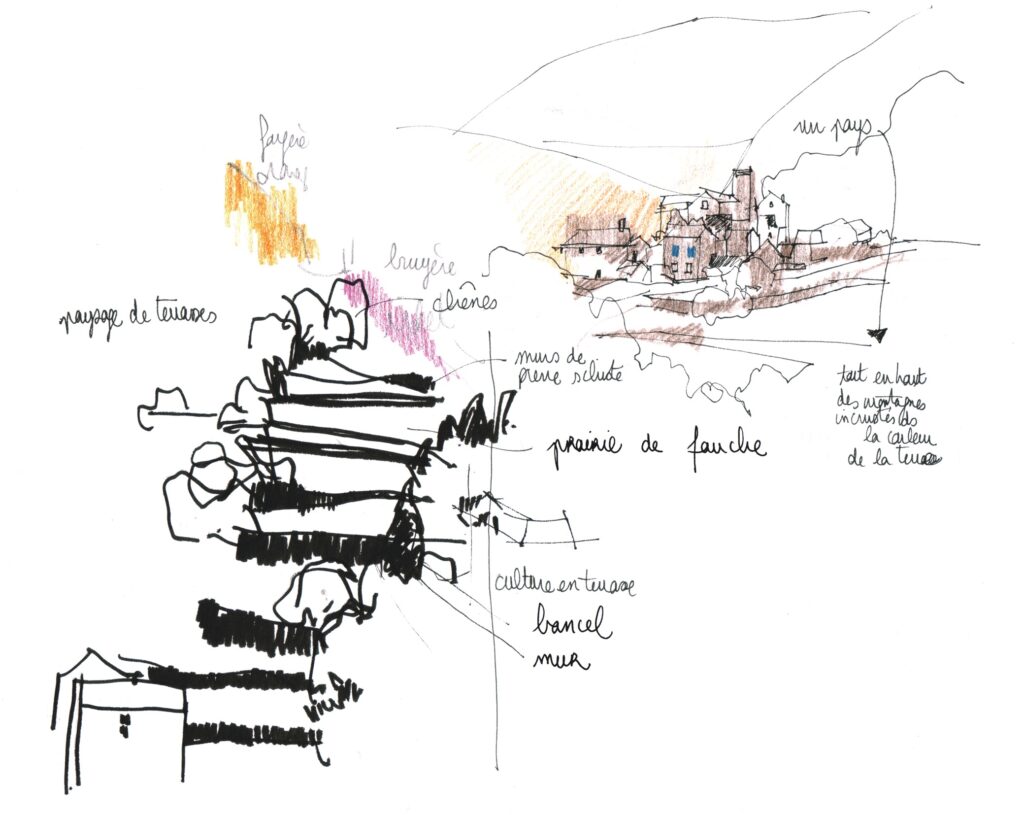 un pays
bruyère
chênes
paysage de terrasses
murs de
pierre schiste
tout en haut
des montagnes
incrustés de
la couleur
de la terre
prairie de fauche
culture en terrasse
bancel
mur